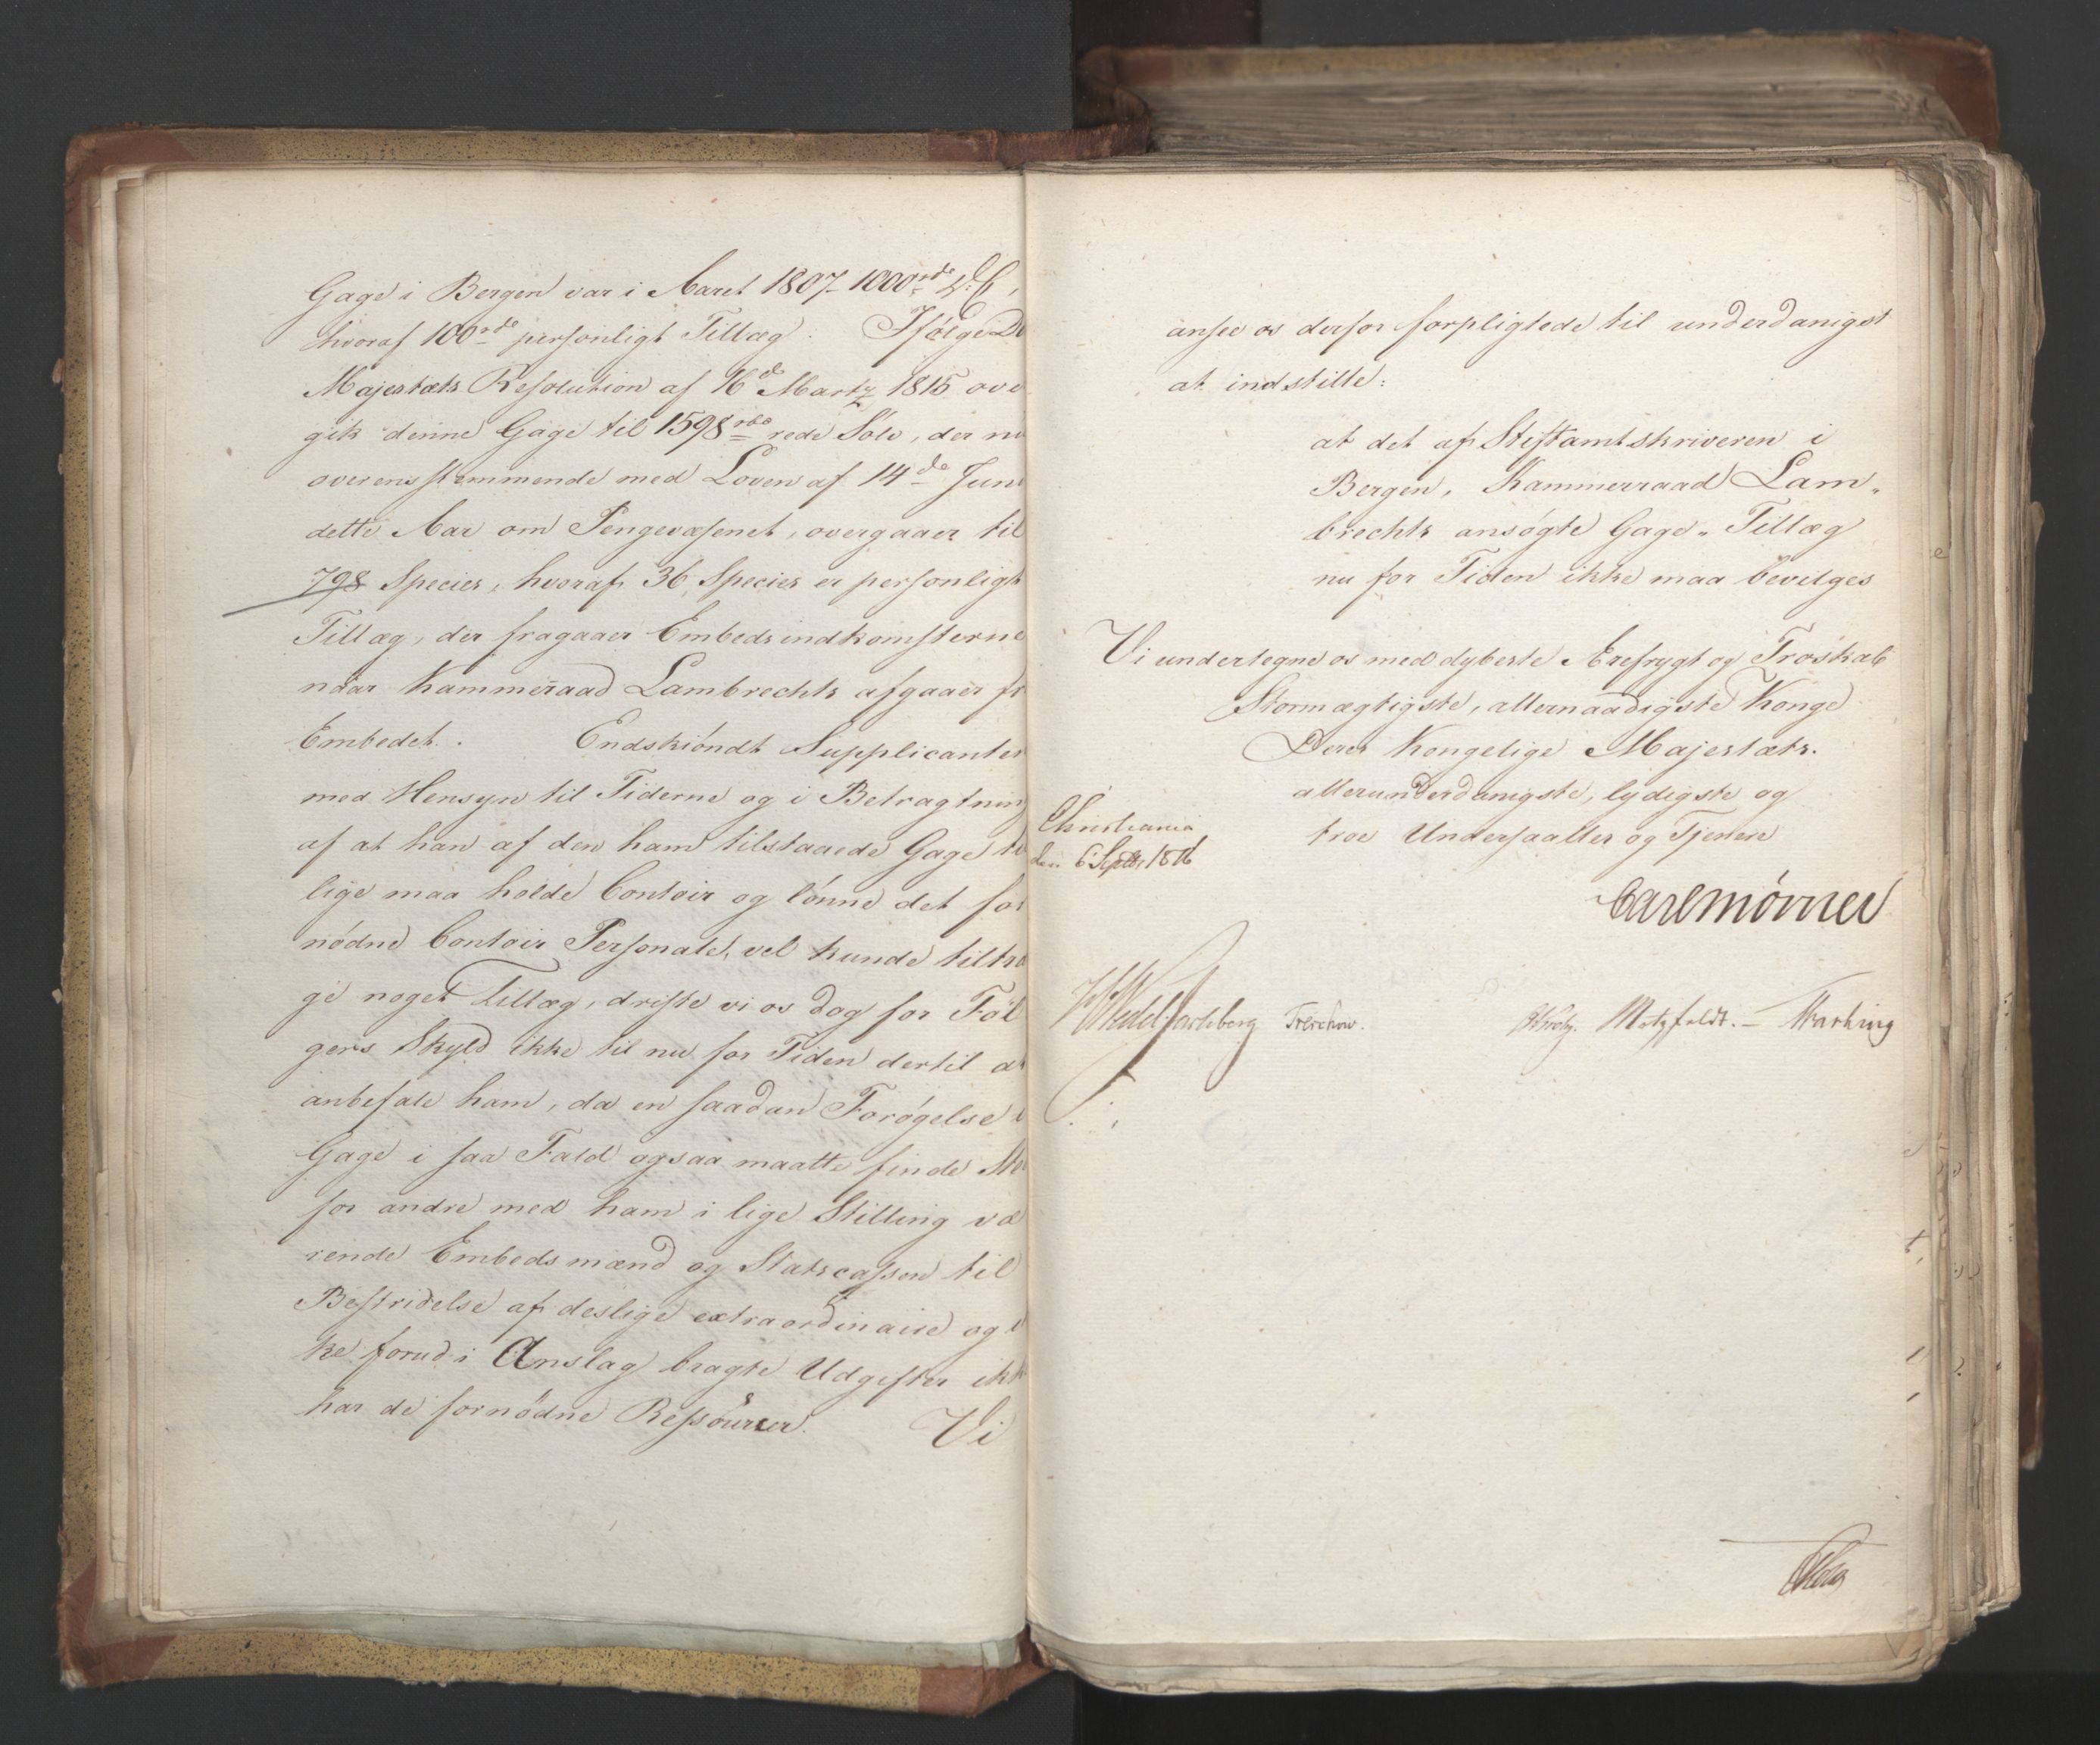 Gage i Bergen var i Aaret 1807 1000 rd D: C,
hvoraf 100 rd personligt Tillæg. Ifølge D
Majestæts Resolution af 16d Martz 1815 ove
gik denne Gage til 1598 rbd rede Sølv, der nu
overensstemmende med Loven af 14de Juni
dette Aar om Pengevæsenet, overgaaer til
798 Species, hvoraf 36 Species er personligt
Tillæg, der fragaaer Embedsindkomsterne
naar Kammerraad Lambrechts afgaaer fr
Embedet. Endskiøndt Supplicanten
med Hensyn til Tiderne og i Betragtning
af at han af den ham tilstaaede Gage
lige maa holde Contoir og lønne det for
nødne Contoir Personale, vel kunde tiltræ
ge noget Tillæg, driste vi os dog for Føl
gers Skyld ikke til nu for Tiden dertil at
anbefale ham, da en saadan Forøgelse i
Gage i saa Fald ogsaa maatte finde Ste
for andre med ham i lige Stilling væ
rende Embedsmænd og Statscassen til
Bestridelse af deslige extraordinaire og i
ke forud i Anslag bragte Udgifter ikk
har de fornødne Ressourcer. Vi
ansee os derfor forpligtede til underdanigst
at indstille:
at det af Stiftamtskriveren i
Bergen, Kammerraad Lam-
brechts ansøgte Gage-Tillæg
nu for Tiden ikke maa bevilges
Vi undertegne os med dybeste Ærefrygt og Troskab
Stormægtigste, allernaadigste Konge
Deres Kongelige Majestæts.
allerunderdanigste, lydigste og
troe Undersaatter og Tjenere
Christiania
den 6 Septbr 1816
Carl Mörner
Wedel Jarlsberg Treschow. Krohg. Motzfeldt. – Fasting